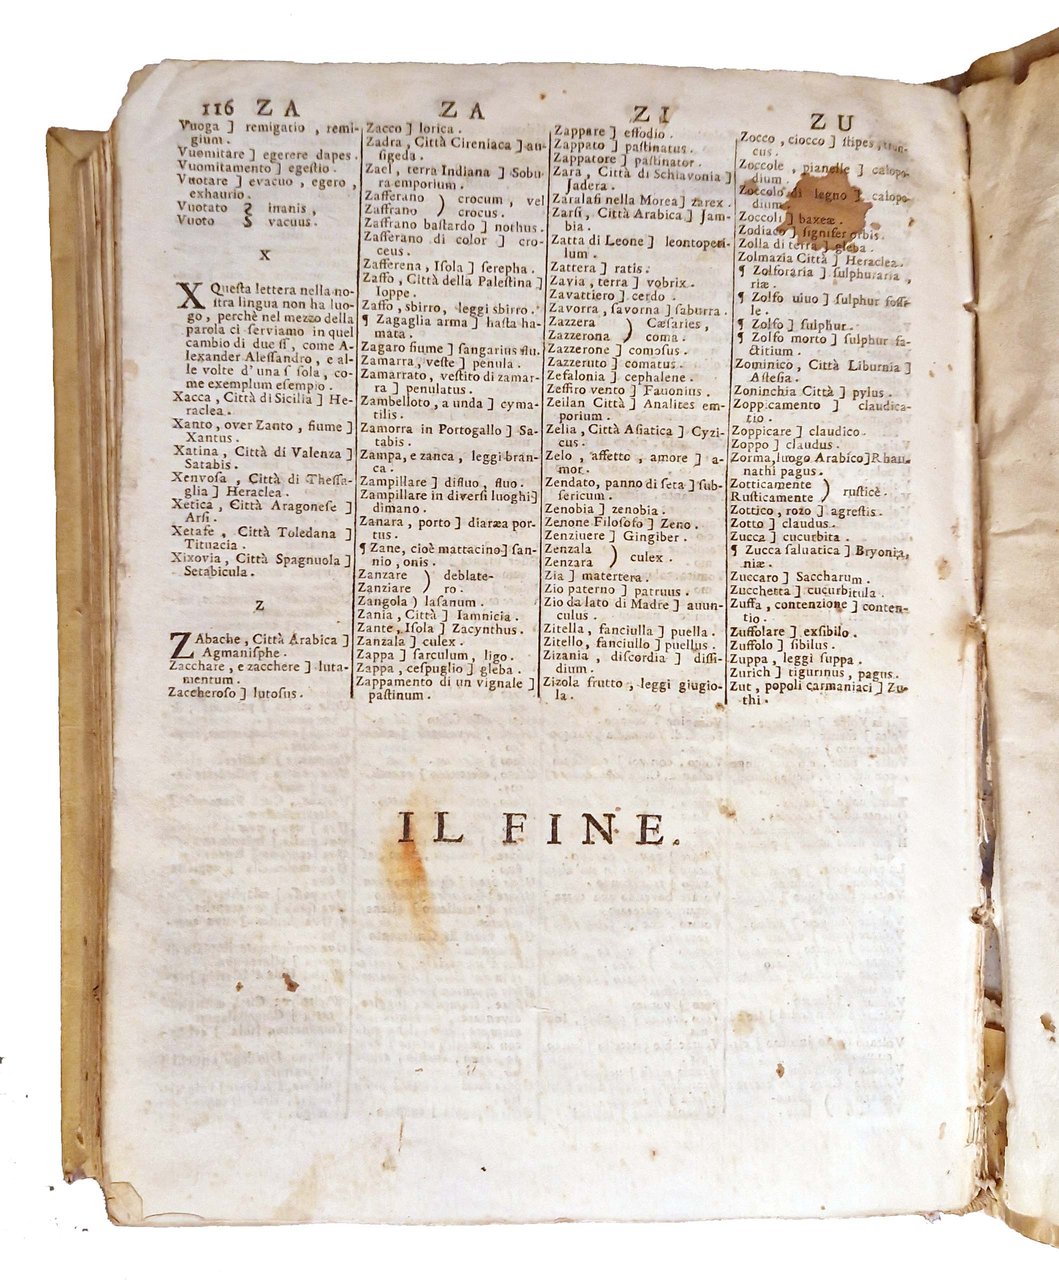 116 ZA
Vuoga ] remigatio , remi-
gium .
Vuomitare ] egerere dapes .
Vuomitamento ] egeſtio .
Vuotare ] evacuo , egero ,
exhaurio .
Vuotato } inanis ,
Vuoto } vacuus .
X
X Queſta lettera nella no-
ſtra lingua non ha luo-
go , perchè nel mezzo della
parola ci ſerviamo in quel
cambio di due ſſ , come A-
lexander Aleſſandro , e al-
le volte d'una ſ ſola , co-
me exemplum eſempio .
Xacca , Città di Sicilia ] He-
raclea .
Xanto , over Zanto , fiume ]
Xantus .
Xatina , Città di Valenza ]
Satabis .
Xenvoſa , Città di Theſſa-
glia ] Heraclea .
Xetica , Città Aragoneſe ]
Arſi .
Xetafe , Città Toledana ]
Tituacia .
Xixovia , Città Spagnuola ]
Setabicula .
Z
ZAbache , Città Arabica ]
Agmaniſphe .
Zacchare , e zacchere ] luta-
mentum .
Zaccheroſo ] lutoſus .
ZA
Zacco ] lorica .
Zadra , Città Cireniaca ] au-
ſigeda .
Zael , terra Indiana ] Sobu-
ra emporium .
Zafferano ) crocum , vel
Zaffrano ) crocus .
Zaffrano baſtardo ] nothus .
Zafferano di color ] cro-
ceus .
Zafferena , Iſola ] ſerepha .
Zaffo , Città della Paleſtina ]
Ioppe .
Zaffo , sbirro , leggi sbirro .
¶ Zagaglia arma ] haſta ha-
mata .
Zagaro fiume ] ſangarius flu.
Zamarra , veſte ] penula .
Zamarrato , veſtito di zamar-
ra ] penulatus .
Zambelloto , a unda ] cyma-
tilis .
Zamorra in Portogallo ] Sa-
tabis .
Zampa, e zanca , leggi bran-
ca .
Zampillare ] diſluo , fluo .
Zampillare in diverſi luoghi ]
dimano .
Zanara , porto ] diaræa por-
tus .
¶ Zane, cioè mattacino ] ſan-
nio , onis .
Zanzare ) deblate-
Zanziare ) ro .
Zangola ) laſanum .
Zania , Città ] Iamnicia .
Zante , Iſola ] Zacynthus .
Zanzala ] culex .
Zappa ] ſarculum , ligo .
Zappa , ceſpuglio ] gleba .
Zappamento di un vignale ]
paſtinum .
ZI
Zappare ] effodio .
Zappato ] paſtinatus .
Zappatore ] paſtinator .
Zara , Città di Schiavonia ]
Jadera .
Zaralaſi nella Morea ] zarex .
Zarſi , Città Arabica ] Jam-
bia .
Zatta di Leone ] leontopeta-
lum .
Zattera ] ratis .
Zavia , terra ] vobrix .
Zavattiero ] cerdo .
Zavorra , ſavorna ] ſaburra .
Zazzera ) Cæſaries ,
Zazzerona ) coma .
Zazzerone ] comoſus .
Zazzeruto ] comatus .
Zefalonia ] cephalene .
Zeffiro vento ] Fauonius .
Zeilan Città ] Analites em-
porium .
Zelia , Città Aſiatica ] Cyzi-
cus .
Zelo , affetto , amore ] a-
mor .
Zendato, panno di ſeta ] ſub-
ſericum .
Zenobia ] zenobia .
Zenone Filoſofo ] Zeno .
Zenziuere ] Gingiber .
Zenzala ) culex .
Zenzara )
Zia ] matertera .
Zio paterno ] patruus .
Zio da lato di Madre ] auun-
culus .
Zitella , fanciulla ] puella .
Zitello , fanciullo ] puellus .
Zizania , diſcordia ] diſſi-
dium .
Zizola frutto , leggi giugio-
la .
ZU
Zocco , ciocco ] ſtipes , trun-
cus .
Zoccole , pianelle ] calopo-
dium .
Zoccolo di legno ] calopo-
dium .
Zoccoli ] baxeæ .
Zodiaco ] ſignifer orbis .
Zolla di terra ] gleba .
Zolmazia Città ] Heraclea .
¶ Zolforaria ] ſulphuraria ,
riæ .
¶ Zolfo uiuo ] ſulphur foſſi-
le .
¶ Zolfo ] ſulphur .
¶ Zolfo morto ] ſulphur fa-
ctitium .
Zominico , Città Liburnia ]
Aſteſia .
Zoninchia Città ] pylus .
Zoppicamento ] claudica-
tio .
Zoppicare ] claudico .
Zoppo ] claudus .
Zorma, luogo Arabico ] Rhau-
nathi pagus .
Zotticamente ) ruſticè .
Ruſticamente )
Zottico , rozo ] agreſtis .
Zotto ] claudus .
Zucca ] cucurbita .
¶ Zucca ſaluatica ] Bryonia,
niæ .
Zuccaro ] Saccharum .
Zucchetta ] cucurbitula .
Zuffa , contenzione ] conten-
tio .
Zuffolare ] exſibilo .
Zuffolo ] ſibilus .
Zuppa , leggi ſuppa .
Zurich ] tigurinus , pagus .
Zut , popoli carmaniaci ] Zu-
thi .
IL FINE.